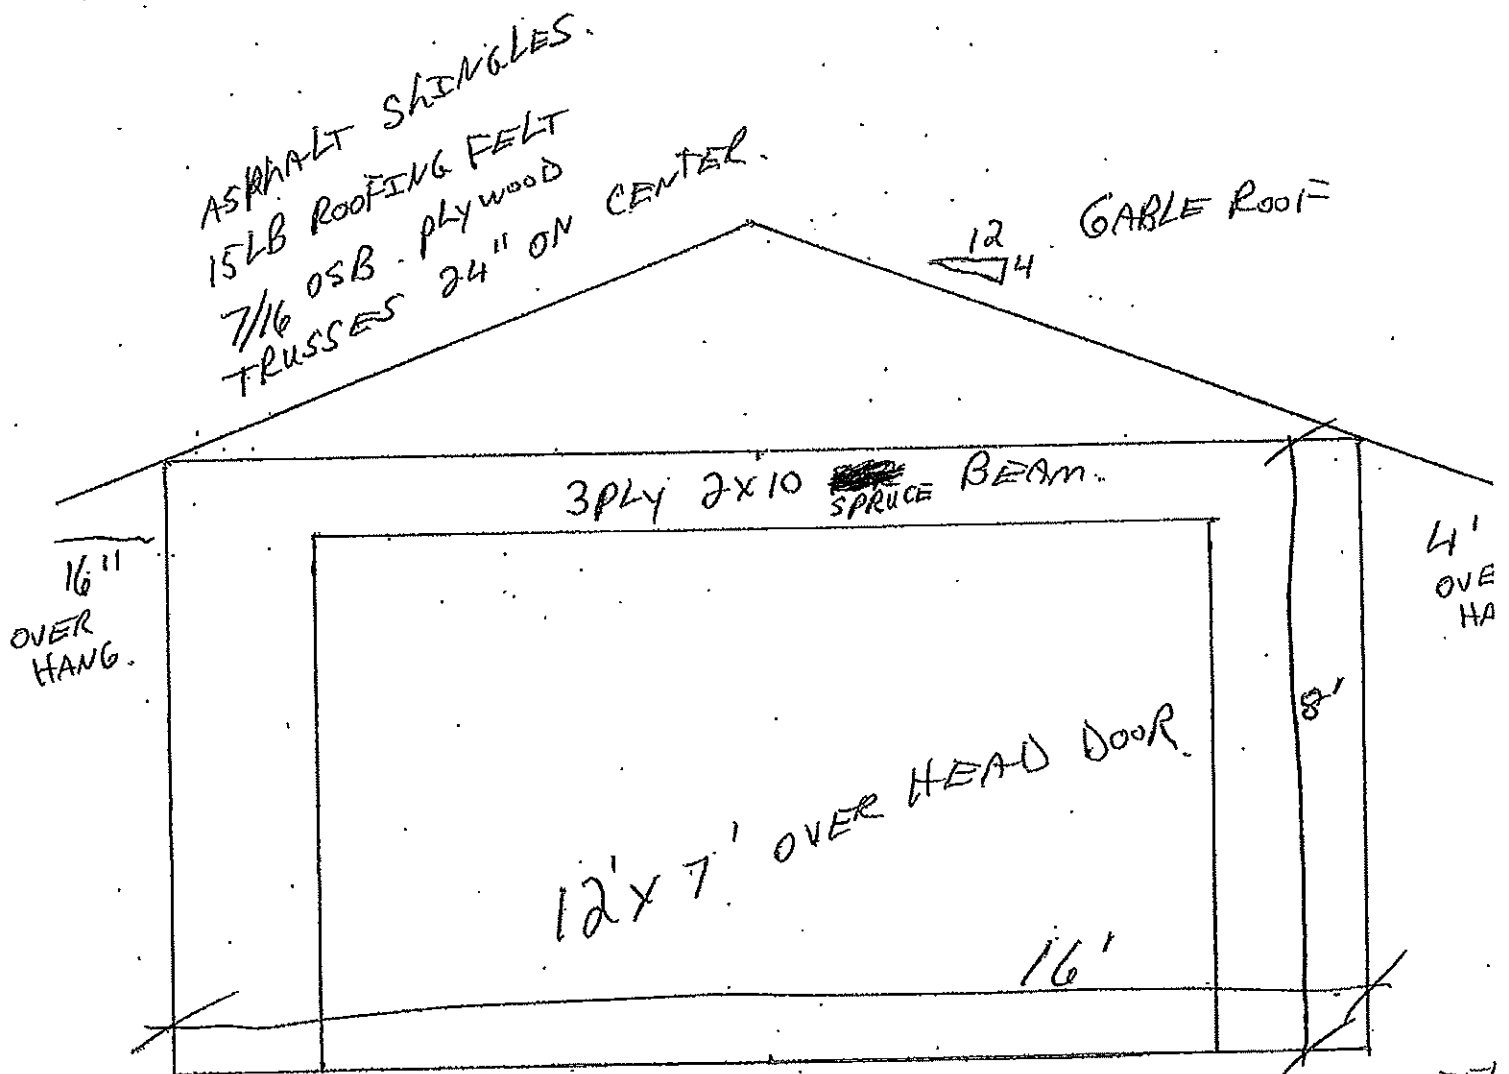 ASPHALT SHINGLES.
15LB ROOFING FELT
7/16 OSB. PLYWOOD
TRUSSES 24" ON CENTER.
12
4
GABLE ROOF
3PLY 2X10 SPRUCE BEAM.
16"
OVER
HANG.
4'
OVE
HA
8'
12' X 7' OVER HEAD DOOR.
16'